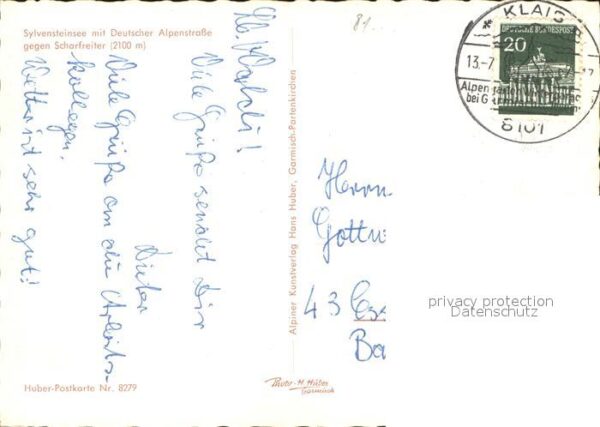 Sylvensteinsee mit Deutscher Alpenstraße
gegen Scharfreiter (2100 m)
Viele Grüße sendet Dir
Dieter
Viele Grüße an die Arbeits-
kollegen.
Wetter ist sehr gut!
Huber-Postkarte Nr. 8279
Alpiner Kunstverlag Hans Huber, Garmisch-Partenkirchen
Photo-H. Huber
Garmisch
81.
KLAIS
DEUTSCHE BUNDESPOST
20
13.-7
8101
Herrn
43
Ba
privacy protection
Datenschutz